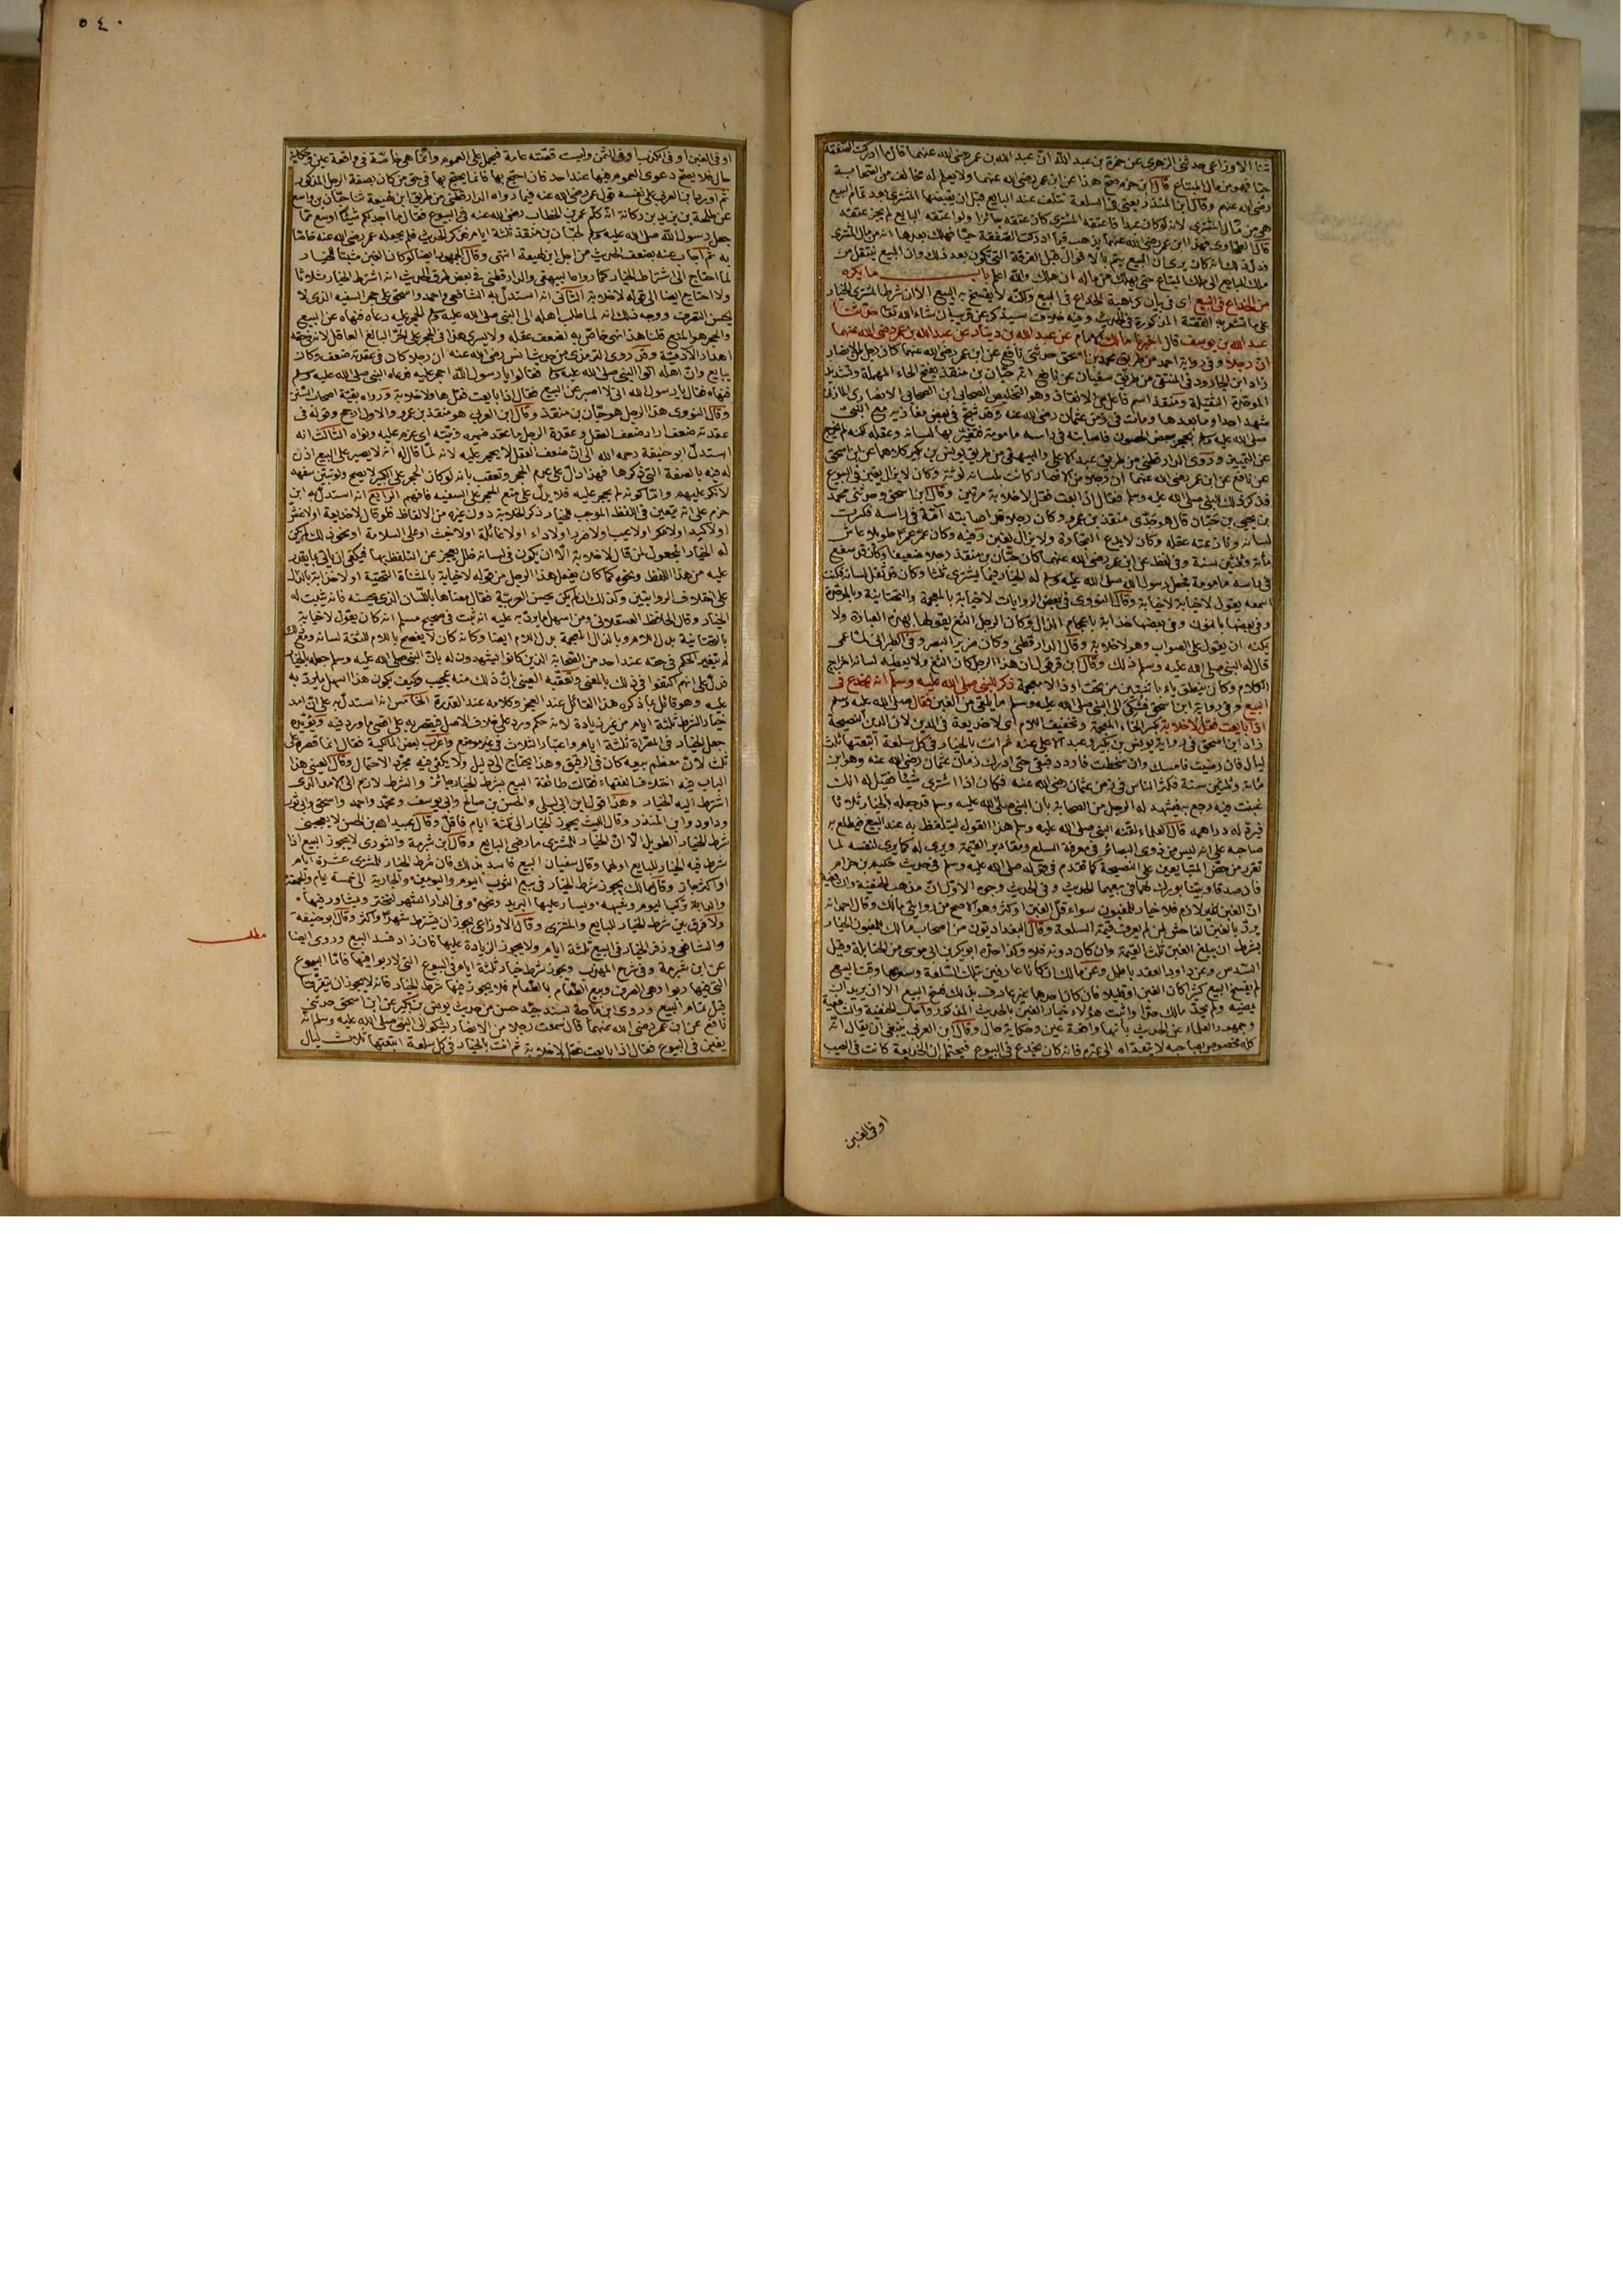 ثنا الاوزاعى حدثنى الزهرى عن حمزة بن عبد الله انّ عبد الله بن عمر رضى الله عنهما قال ما ادركت الصفقة
حيّا فهو من مال المبتاع قال ابن حزم صحّ هذا عن ابن عمر رضى الله عنهما ولا يعلم له مخالف من الصّحابة
رضى الله عنهم وقال ابن المنذر يعنى فى السلعة تتلف عند البايع قبل ان يقبضها المشترى بعد تمام البيع
هى من مال المشترى لانه لو كان عبدا فاعتقه المشترى كان عتقه جائزا ولو اعتقه البايع لم يجز عتقه
قال الطحاوى فهذا ابن عمر رضى الله عنهما يذهب فيما ادركت الصّفقة حيّا فهلك بعدها انه من مال المشترى
فدلّ ذلك انه كان يرى ان البيع يتم بالاقوال قبل الفرقة التى تكون بعد ذلك وان المبيع ينتقل من
ملك البايع الى ملك المبتاع حتى يهلك من ماله ان هلك والله اعلم باب ما يكره
من الخداع فى البيع اى فى بيان كراهية الخداع فى البيع ولكنّه لا يفسخ به البيع الا ان شرط المشترى الخيار
على ما تشعر به القصّة المذكورة فى الحديث وفيه خلاف سيذكر عن قريب ان شاء الله تعالى حدّثنا
عبد الله بن يوسف قال اخبرنا مالك الامام عن عبد الله بن دينار عن عبد الله بن عمر رضى الله عنهما
انّ رجلا وفى رواية احمد من طريق محمد بن اسحق حدّثنى نافع عن ابن عمر رضى الله عنهما كان رجل من الانصار
زاد ابن الجارود فى المنتقى من طريق سفيان عن نافع انّه حبّان بن منقذ بفتح الحاء المهملة وتشديد
الموحّدة المثقيلة ومنقذ اسم فاعل من الانقاذ وهو التخليص الصحابى ابن الصحابى الانصارى المازنى
شهد احدا وما بعدها ومات فى زمن عثمان رضى الله عنه وقد شجّ فى بعض مغازيه مع النبىّ
صلى الله عليه وسلم بحجر بعض الحصون فاصابته فى راسه مامومة فتغيّر بها لسانه وعقله لكنه لم يخرج
عن التمييز وروى الدارقطنى من طريق عبد الاعلى والبيهقى من طريق يونس بن بكير كلاهما عن ابن اسحق
عن نافع عن ابن عمر رضى الله عنهما ان رجلا من الانصار كانت بلسانه لوثة وكان لا يزال يغبن فى البيوع
فذكر ذلك للنبى صلى الله عليه وسلم فقال اذا بعت فقل لا خلابة مرتين وقال ابن اسحق وحدّثنى محمد
بن يحيى بن حبّان قال هو جدّى منقذ بن عمرو وكان رجلا قد اصابته آمّة فى راسه فكسرت
لسانه ونازعته عقله وكان لا يدع التجارة ولا يزال يغبن وفيه وكان عمّر عمرا طويلا عاش
مأة وثلثين سنة وفى لفظ عن ابن عمر رضى الله عنهما كان حبّان بن منقذ رجلا ضعيفا وكان قد سفع
فى راسه مامومة فجعل رسول الله صلى الله عليه وسلم له الخيار فيما يشترى ثلثا وكان قد ثقل لسانه فكنت
اسمعه يقول لا خيابة لا خيابة وقال النووى فى بعض الروايات لا خيابة بالمعجمة والتحتانية وبالموحّدة
وفى بعضها بالنون وفى بعضها خذابة باعجام الذال وكان الرجل الثغ يقولها بهذه العبارة ولا
يمكنه ان يقول على الصواب وهو لا خلابة وقال الدارقطنى وكان ضرير البصر وفى الطبرانى لمّا عمى
قال له النبى صلى الله عليه وسلم ذلك وقال ابن قرقول ان هذا الرجل كان الثغ ولا يعطيه لسانه اخراج
الكلام وكان ينطق ياء باثنتين من تحت او ذالا معجمة ذكر للنبى صلى الله عليه وسلم انه يخدع فى
البيع وفى رواية ابن اسحق فشكى الى النبى صلى الله عليه وسلم ما يلقى من الغبن فقال صلى الله عليه وسلم
اذا بايعت فقل لا خلابة بكسر الخاء المعجمة وتخفيف اللام اى لا خديعة فى الدين لان الدين النصيحة
زاد ابن اسحق فى رواية يونس بن بكير وعبد الاعلى عنه ثم انت بالخيار فى كل سلعة ابتعتها ثلث
ليال فان رضيت فامسك وان سخطت فاردد فبقى حتى ادرك زمان عثمان رضى الله عنه وهو ابن
مأة وثلثين سنة فكثر الناس فى زمن عثمان رضى الله عنه فكان اذا اشترى شيئا فقيل له انك
غبنت فيه رجع به فيشهد له الرجل من الصحابة بان النبى صلى الله عليه وسلم قد جعله بالخيار ثلاثا
فيردّ له دراهمه قال العلماء لقّنه النبى صلى الله عليه وسلم هذا القول ليتلفظ به عند البيع فيطلع به
صاحبه على انه ليس من ذوى البصائر فى معرفة السلع ومقادير القيمة ويرى له كما يرى لنفسه لما
تقرر من حضّ المتبايعين على النصيحة كما تقدم فى قوله صلى الله عليه وسلم فى حديث حكيم بن حزام
فان صدقا وبيّنا بورك لهما فى بيعهما الحديث وفى الحديث وجوه الاوّل انّ مذهب الحنفية والشافعية
انّ الغبن غير لازم فلا خيار للمغبون سواء قلّ الغبن او كثر وهو الاصح من روايتى مالك وقال احمد انه
يردّ بالغبن الفاحش لمن لم يعرف قيمة السلعة وقال البغداديون من اصحاب مالك للمغبون الخيار
بشرط ان يبلغ الغبن ثلث القيمة وان كان دونه فلا وكذا حدّه ابو بكر بن ابى موسى من الحنابلة وقيل
السّدس وعن داود العقد باطل وعن مالك ان كانا عارفين بتلك السّلعة وسعرها وقت البيع
لم يفسخ البيع كثيرا كان الغبن او قليلا فان كان احدهما غير عارف بذلك فسخ البيع الا ان يريد ان
يمضيه ولم يحدّ مالك حدّا واثبت هؤلاء خيار الغبن بالحديث المذكور واجاب الحنفية والشافعية
وجمهور العلماء عن الحديث بأنها واقعة عين وحكاية حال وقال ابن العربى ينبغى ان يقال انّه
كله مخصوص بصاحبه لا يتعدّاه الى غيره فانه كان يخدع فى البيوع فيحتمل ان الخديعة كانت فى العيب
او فى الغبن
٥٤٠
او فى العين او فى الكذب او فى الثمن وليست قصّته عامة فيحمل على العموم وانّما هى خاصّة فى واقعة عين وحكاية
حال فلا يصحّ دعوى العموم فيها عند احد فان احتج بها فانما يحتج بها فى حق من كان بصفة الرجل المذكور
ثم اورد ابن العربى على نفسه قول عمر رضى الله عنه فيما رواه الدارقطنى من طريق ابن لهيعة ثنا حبّان بن واسع
عن طلحة بن يزيد بن ركانة انّه كلّم عمر بن الخطاب رضى الله عنه فى البيوع فقال ما اجد لكم شيئا اوسع ممّا
جعل رسول الله صلى الله عليه وسلم لحبّان بن منقذ ثلثة ايام فذكر الحديث فلم يجعله عمر رضى الله عنه خاصّا
به ثم اجاب عنه بضعف الحديث من اجل ابن لهيعة انتهى وقال الجمهور ايضا لو كان الغبن مثبتا للخيار
لما احتاج الى اشتراط الخيار كما رواه البيهقى والدارقطنى فى بعض طرق الحديث انه اشترط الخيار ثلاثا
ولا احتاج ايضا الى قوله لا خلابة الثانى انه استدل به الشافعى واحمد واسحق على حجر السفيه الذى لا
يحسن التصرف ووجه ذلك انه لما طلب اهله الى النبى صلى الله عليه وسلم الحجر عليه دعاه فنهاه عن البيع
والحجر هو المنع قلنا هذا نهى خاصّ به لضعف عقله ولا يسرى هذا فى الحجر على الحرّ البالغ العاقل لان فى حقه
اهدار الآدميّة وقد روى الترمذى من حديث انس رضى الله عنه ان رجلا كان فى عقدته ضعف وكان
يبايع وانّ اهله اتوا النبى صلى الله عليه وسلم فقالوا يا رسول الله احجر عليه فدعاه النبى صلى الله عليه وسلم
فنهاه فقال يا رسول الله انى لا اصبر عن البيع فقال اذا بايعت فقل ها ولا خلابة ورواه بقيّة اصحاب السّنن
وقال النووى هذا الرجل هو حبّان بن منقذ وقال ابن العربى هو منقذ بن عمرو والاول ارجح وقوله فى
عقدته ضعف اراد ضعف العقل وعقدة الرجل ما عقد ضميره ونيّته اى عزم عليه ونواه الثالث انه
استدلّ ابو حنيفة رحمه الله الى انّ ضعيف العقل لا يحجر عليه لانه لمّا قال له انه لا يصبر على البيع اذن
له فيه بالصفة التى ذكرها فهذا دلّ على عدم الحجر وتعقب بانه لو كان الحجر على الكبير لا يصح
لانكر عليهم وامّا كونه لم يحجر عليه فلا يدلّ على منع الحجر على السفيه فافهم الرابع انه استدل به ابن
حزم على انه يتعين فى اللفظ الموجب للخيار ذكر الخلابة دون غيره من الالفاظ فلو قال لا خديعة او لا غشّ
او لا كيد او لا مكر او لا عيب او لا ضرر او لا داء او لا غائلة او لا خبث او على السلامة او نحو ذلك لم يكن
له الخيار المجعول لمن قال لا خلابة الّا ان يكون فى لسانه خلل يعجز عن التلفظ بها فيكفى ان يأتى بما يقدر
عليه من هذا اللفظ ونحوه كما كان يفعل هذا الرجل من قوله لا خيابة بالمثناة التحتية او لا خذابة بالذال
على اختلاف الروايتين وكذلك ان لم يكن يحسن العربيّة فقال معناها باللّسان الذى يحسنه فانه يثبت له
الخيار وقال الحافظ العسقلانى ومن اسهل ما يردّ به عليه انه ثبت فى صحيح مسلم انه كان يقول لا خيابة
بالتحتانية بدل اللام وبالذال المعجمة بدل اللام ايضا وكانه كان لا يفصح باللام للثغة لسانه ومع ذلك
لم يتغير الحكم فى حقه عند احد من الصّحابة الذين كانوا يشهدون له بانّ النبى صلى الله عليه وسلم جعله بالخيار
فدلّ على انهم اكتفوا فى ذلك بالمعنى وتعقّبه العينى بانّ ذلك منه عجيب وكيف يكون هذا اسهل ما يردّ به
عليه وهو قائل بما ذكره هذا القائل عند العجز وكلامه عند القدرة الخامس انه استدلّ به على انّ امد
خيار الشرط ثلثة ايام من غير زيادة لانه حكم ورد على خلاف الاصل فيقتصر به على اقصى ما ورد فيه ويؤيّده
جعل الخيار فى المصرّاة ثلثة ايام واعتبار الثلاث فى غير موضع واغرب بعض المالكية فقال انما قصره على
ثلث لانّ معظم بيعه كان فى الرقيق وهذا يحتاج الى دليل ولا يكفى فيه مجرّد الاحتمال وقال العينى هذا
الباب فيه اختلاف الفقهاء فقالت طائفة البيع بشرط الخيار جائز والشرط لازم الى الامد الذى
اشترط اليه الخيار وهذا قول ابن ابى ليلى والحسن بن صالح وابى يوسف ومحمّد واحمد واسحق وابى ثور
وداود وابن المنذر وقال الليث يجوز الخيار الى ثلثة ايام فاقلّ وقال عبيد الله بن الحسن لا يعجبنى
شرط الخيار الطويل الّا انّ الخيار للمشترى ما رضى البايع وقال ابن شبرمة والثورى لا يجوز البيع اذا
شرط فيه الخيار للبايع او لهما وقال سفيان البيع فاسد بذلك فان شرط الخيار للمشترى عشرة ايام
او اكثر جاز وقال مالك يجوز شرط الخيار فى بيع الثوب اليوم واليومين والجارية الى خمسة ايام والجمعة
والدابة تركب اليوم وشبهه ويسار عليها البريد ونحوه وفى الدار الشهر لتختبر ويشاور فيها
ولا فرق بين شرط الخيار للبايع والمشترى وقال الاوزاعى يجوز ان يشترط شهرا واكثر وقال ابو حنيفة
والشافعى وزفر الخيار فى البيع ثلثة ايام ولا يجوز الزيادة عليها فان زاد فسد البيع وروى ايضا
مطلب
عن ابن شبرمة وفى شرح المهذب ويجوز شرط خيار ثلثة ايام فى البيوع التى لا ربوا فيها فامّا البيوع
التى فيها ربوا وهى الصرف وبيع الطّعام بالطّعام فلا يجوز فيها شرط الخيار فانه لا يجوز ان يتفرّقا
قبل تمام البيع وروى ابن ماجة بسند جيّد حسن من حديث يونس بن بكير عن ابن اسحق حدثنى
نافع عن ابن عمر رضى الله عنهما قال سمعت رجلا من الانصار يشكو الى النبى صلى الله عليه وسلم انّه
يغبن فى البيوع فقال اذا بايعت فقل لا خلابة ثم انت بالخيار فى كل سلعة ابتعتها ثلاث ليال